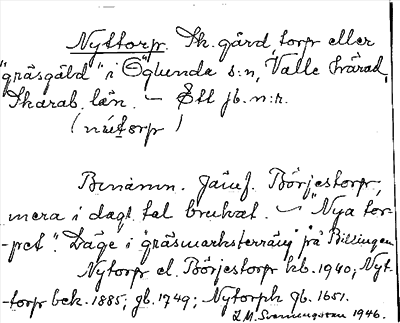 Nyttorp. Sk. gård, torp eller
"gräsgäld" i Öglunda s:n, Valle härad,
Skarab. län. — Ett jb. n:r.
(nútorp)
Benämn. Jämf. Börjestorp,
mera i dagl. tal brukat. — "Nya tor-
-pet". Läge i gräsmarksterräng på Billingen
Nytorp el. Börjestorp kb. 1940; Nyt-
-torp bek. 1885; gb. 1749; Nytorph gb. 1651.
1946.